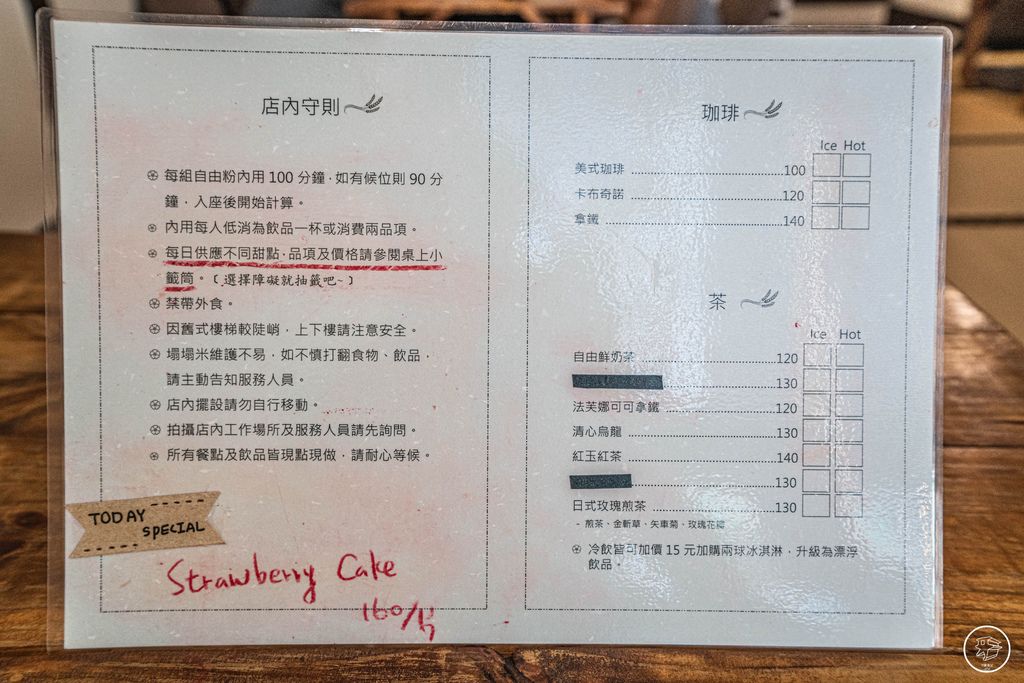 店內守則
每組自由粉內用 100 分鐘，如有候位則 90 分
鐘，入座後開始計算。
內用每人低消為飲品一杯或消費兩品項。
每日供應不同甜點，品項及價格請參閱桌上小
籤筒。〔選擇障礙就抽籤吧~〕
禁帶外食。
因舊式樓梯較陡峭，上下樓請注意安全。
塌塌米維護不易，如不慎打翻食物、飲品，
請主動告知服務人員。
店內擺設請勿自行移動。
拍攝店內工作場所及服務人員請先詢問。
所有餐點及飲品皆現點現做，請耐心等候。
TODAY
SPECIAL
Strawberry Cake
160/片
珈琲
Ice Hot
美式珈琲 100
卡布奇諾 120
拿鐵 140
茶
Ice Hot
自由鮮奶茶 120
130
法芙娜可可拿鐵 120
清心烏龍 130
紅玉紅茶 140
130
日式玫瑰煎茶 130
- 煎茶、金斬草、矢車菊、玫瑰花瓣
冷飲皆可加價 15 元加購兩球冰淇淋，升級為漂浮
飲品。